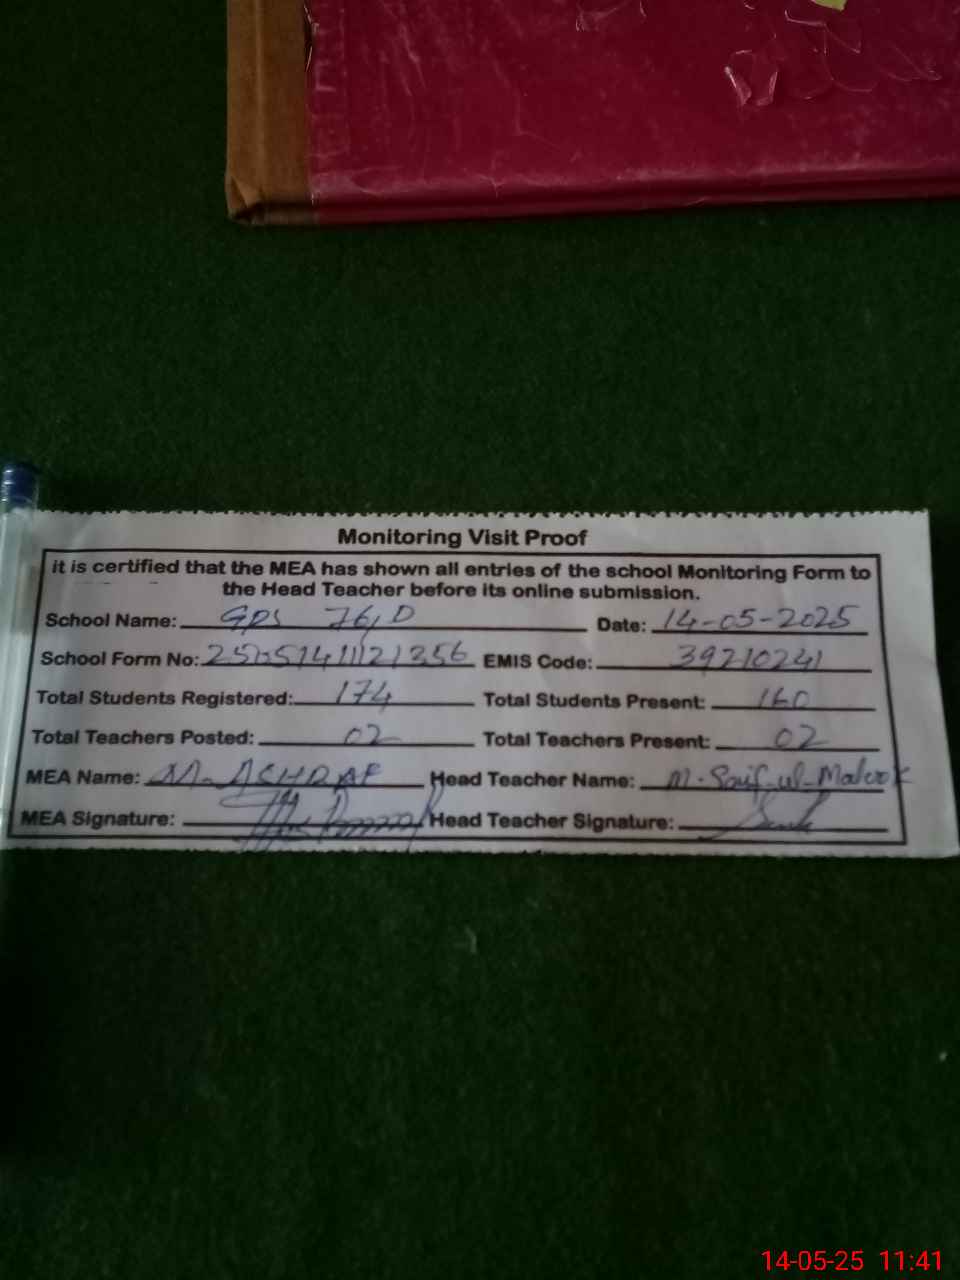 Monitoring Visit Proof
it is certified that the MEA has shown all entries of the school Monitoring Form to
the Head Teacher before its online submission.
School Name: GPS 76/D Date: 14-05-2025
School Form No: EMIS Code: 39210241
Total Students Registered: 174 Total Students Present: 160
Total Teachers Posted: 02 Total Teachers Present: 02
MEA Name: M. ASHRAF Head Teacher Name: M. Saif-ul-Malook
MEA Signature: Head Teacher Signature:
14-05-25 11:41